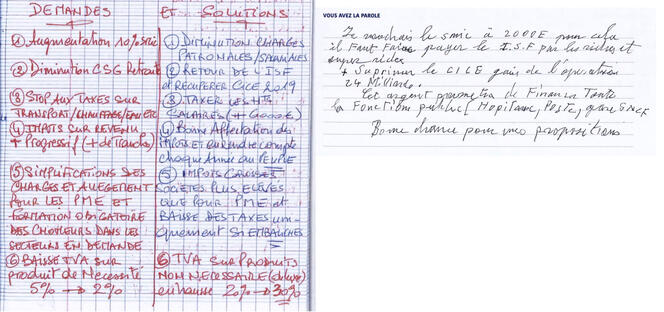 DEMANDES
① Augmentation 10% SMIC
② Diminution CSG Retraite
③ STOP AUX TAXES SUR
TRANSPORT/CHAUFFAGE/EAU ETC
④ IMPOTS SUR REVENU
+ Progressif (+ de Tranches)
⑤ SIMPLIFICATIONS DES
CHARGES ET ALLEGEMENT
POUR LES PME ET
FORMATION OBLIGATOIRE
DES CHOMEURS DANS LES
SECTEURS EN DEMANDE
⑥ BAISSE TVA SUR
produit de Necessité
5% → 2%
ET SOLUTIONS
① DIMINUTION CHARGES
PATRONALES/SALARIALES
② RETOUR DE L'ISF
et RÉCUPERER CICE 2019
③ TAXER LES HTS
SALAIRES (++ Google)
④ Bonne Affectation des
IMPOTS et en rendre compte
chaque Année au PEUPLE
⑤ IMPOTS GROSSES
SOCIETES PLUS ELEVÉS
QUE POUR PME et
BAISSE DES TAXES uni-
quement SI EMBAUCHES
⑥ TVA SUR PRODUITS
NON NECESSAIRE (de luxe)
en hausse 20% → 30%
VOUS AVEZ LA PAROLE
Je voudrais le smic à 2000E pour cela
il Faut Faire payer le I.S.F par les riches et
super riches
+ Suprimer le CICE gain de l'operation
24 Milliards.
Cet argent permettra de Financer Toute
la Fonction public [Hopitaux, Poste, gare SNCF
Bonne chance pour mes propositions